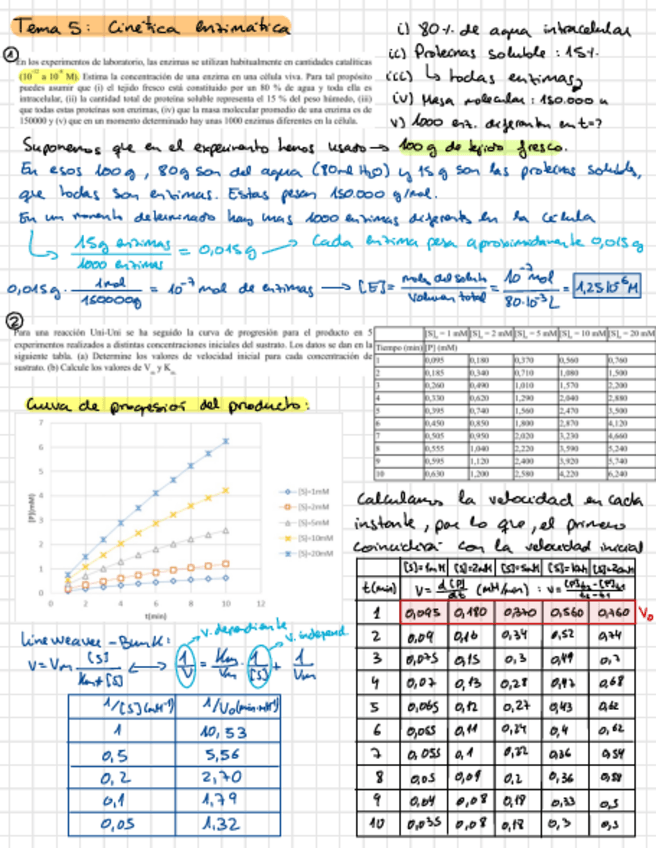 Tema 5: Cinética enzimática
i) 80% de agua intracelular
ii) Proteínas soluble: 15%
iii) ↳ todas enzimas
iv) Masa molecular: 150.000 u
v) 1000 enz. diferentes en t=?
① En los experimentos de laboratorio, las enzimas se utilizan habitualmente en cantidades catalíticas
a 10 M). Estima la concentración de una enzima en una célula viva. Para tal propósito
puedes asumir que (i) el tejido fresco está constituido por un 80 % de agua y toda ella es
intracelular, (ii) la cantidad total de proteína soluble representa el 15 % del peso húmedo, (iii)
que todas estas proteínas son enzimas, (iv) que la masa molecular promedio de una enzima es de
150000 y (v) que en un momento determinado hay unas 1000 enzimas diferentes en la célula.
Suponemos que en el experimento hemos usado → 100 g de tejido fresco.
En esos 100g, 80g son del agua (80ml H₂O) y 15 g son las proteínas solubles,
que todas son enzimas. Estas pesan 150.000 g/mol.
En un momento determinado hay unas 1000 enzimas diferentes en la célula
↳ 15g enzimas / 1000 enzimas = 0,015g → Cada enzima pesa aproximadamente 0,015g
0,015g · 1mol / 150000g = 10⁻⁷ mol de enzimas → [E]= moles del soluto / Volumen total = 10⁻⁷ mol / 80·10⁻³L = 1,25·10⁻⁶M
② Para una reacción Uni-Uni se ha seguido la curva de progresión para el producto en 5
experimentos realizados a distintas concentraciones iniciales del sustrato. Los datos se dan en la
siguiente tabla. (a) Determine los valores de velocidad inicial para cada concentración de
sustrato. (b) Calcule los valores de Vm y Km
[S]₀ = 1 mM [S]₀ = 2 mM [S]₀ = 5 mM [S]₀ = 10 mM [S]₀ = 20 mM
Tiempo (min) [P] (mM)
1 0,095 0,180 0,370 0,560 0,760
2 0,185 0,340 0,710 1,080 1,500
3 0,260 0,490 1,010 1,570 2,200
4 0,330 0,620 1,290 2,040 2,880
5 0,395 0,740 1,560 2,470 3,500
6 0,450 0,850 1,800 2,870 4,120
7 0,505 0,950 2,020 3,230 4,660
8 0,555 1,040 2,220 3,590 5,240
9 0,595 1,120 2,400 3,920 5,740
10 0,630 1,200 2,580 4,220 6,240
Curva de progresión del producto:
7
6
5
4
3
2
1
0
[P](mM)
0 2 4 6 8 10 12
t(min)
[S]=1mM
[S]=2mM
[S]=5mM
[S]=10mM
[S]=20mM
Calculamos la velocidad en cada
instante, por lo que, el primero
coincidirá con la velocidad inicial
[S]=1mM [S]=2mM [S]=5mM [S]=10mM [S]=20mM
t(min) V= d[P]/dt (mM/min) : v= [P]t₂-[P]t₁ / t₂-t₁
1 0,095 0,180 0,370 0,560 0,760 V₀
2 0,09 0,16 0,34 0,52 0,74
3 0,075 0,15 0,3 0,49 0,7
4 0,07 0,13 0,28 0,47 0,68
5 0,065 0,12 0,27 0,43 0,62
6 0,055 0,11 0,24 0,4 0,62
7 0,055 0,1 0,22 0,36 0,54
8 0,05 0,09 0,2 0,36 0,58
9 0,04 0,08 0,18 0,33 0,5
10 0,035 0,08 0,18 0,3 0,5
Lineweaver-Burk:
v. dependiente
v. independ.
V=Vm [S] / Km+[S] ↔ 1/V = Km/Vm · 1/[S] + 1/Vm
1/[S](mM⁻¹) 1/V₀(min·mM⁻¹)
1 10,53
0,5 5,56
0,2 2,70
0,1 1,79
0,05 1,32